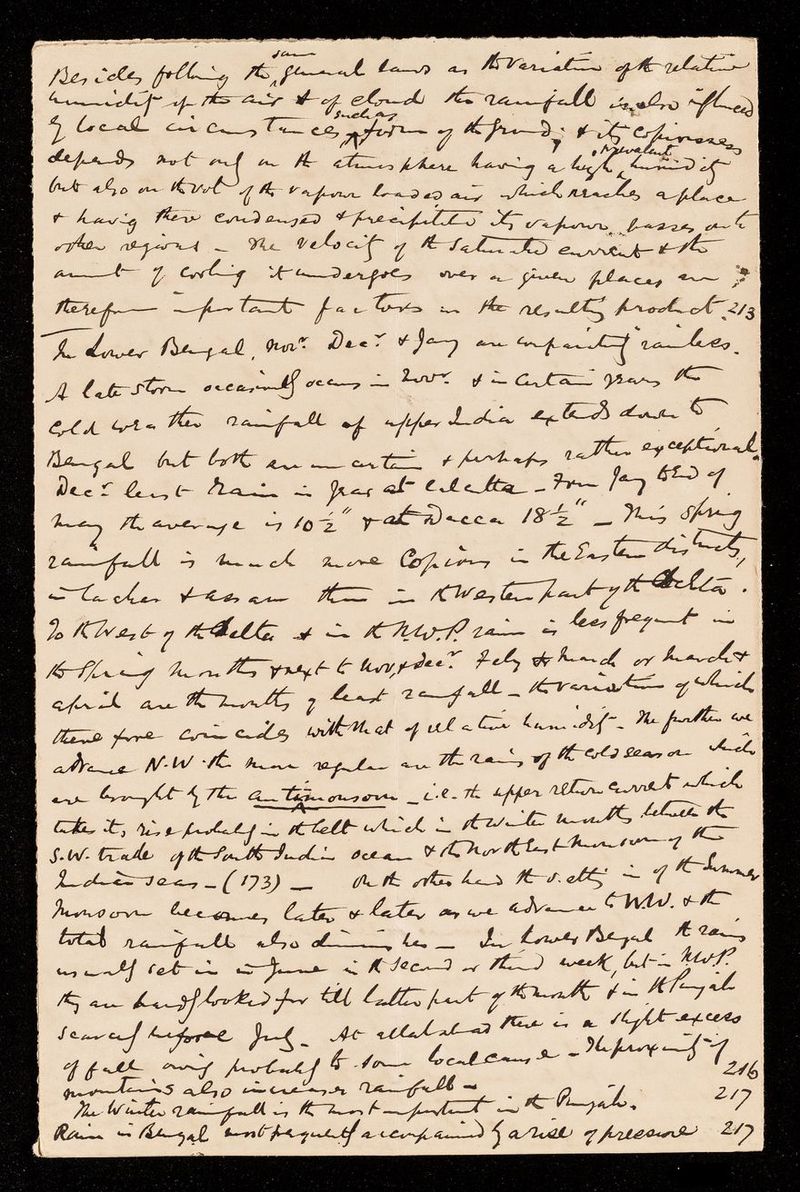 Besides following the ^same general laws as the variation of the relative
humidity of the air & of cloud the rainfall is also influenced
by local circumstances ^such as form of the ground; & its copiousness
depends not only on the atmosphere having a high ^prevalent humidity
but also on the vol of the vapour loaded air which reaches a place
& having there condensed & precipitated its vapour passes on to
other regions – The velocity of the saturated current & the
amount of cooling it undergoes over a given places are
therefore important factors in the resulting product. 213
In Lower Bengal, Novr. Decr. & Jany are comparatively rainless.
A late storm occasionally occurs in Novr. & in certain years the
cold weather rainfall of upper India extends down to
Bengal but both are uncertain & perhaps rather exceptional.
Decr. least rain in year at Calcutta – From Jany to End of
May the average is 10 ½" & at Dacca 18 ½" – This Spring
rainfall is much more copious in the Eastern districts,
in Cachar & Assam than in the Western part of the Delta.
To the West of the Delta & in the N.W.P. rain is less frequent in
the Spring months & next to Nov. & Decr. Feby & March or March &
April are the months of least rainfall – the variation of which
therefore coincides with that of relative humidity – The further we
advance N.W. the more regular are the rains of the cold season which
are brought by the antimonsoon – i.e. the upper return current which
takes its rise probably in the belt which in the Winter months between the
S.W. trade of the South Indian ocean & the North East Monsoon of the
Indian seas – (173) – On the other hand the setting in of the Summer
Monsoon becomes later & later as we advance to N.W. & the
total rainfall also diminishes – In Lower Bengal the rains
usually set in in June in the second or third week, but in N.W.P.
they are hardly looked for till latter part of the month & in the Punjab
scarcely before July – At Allahabad there is a slight excess
of fall owing probably to some local cause – The proximity of
mountains also increases rainfall – 216
The Winter rainfall is the most important in the Punjab. 217
Rain in Bengal most frequently accompanied by a rise of pressure 217